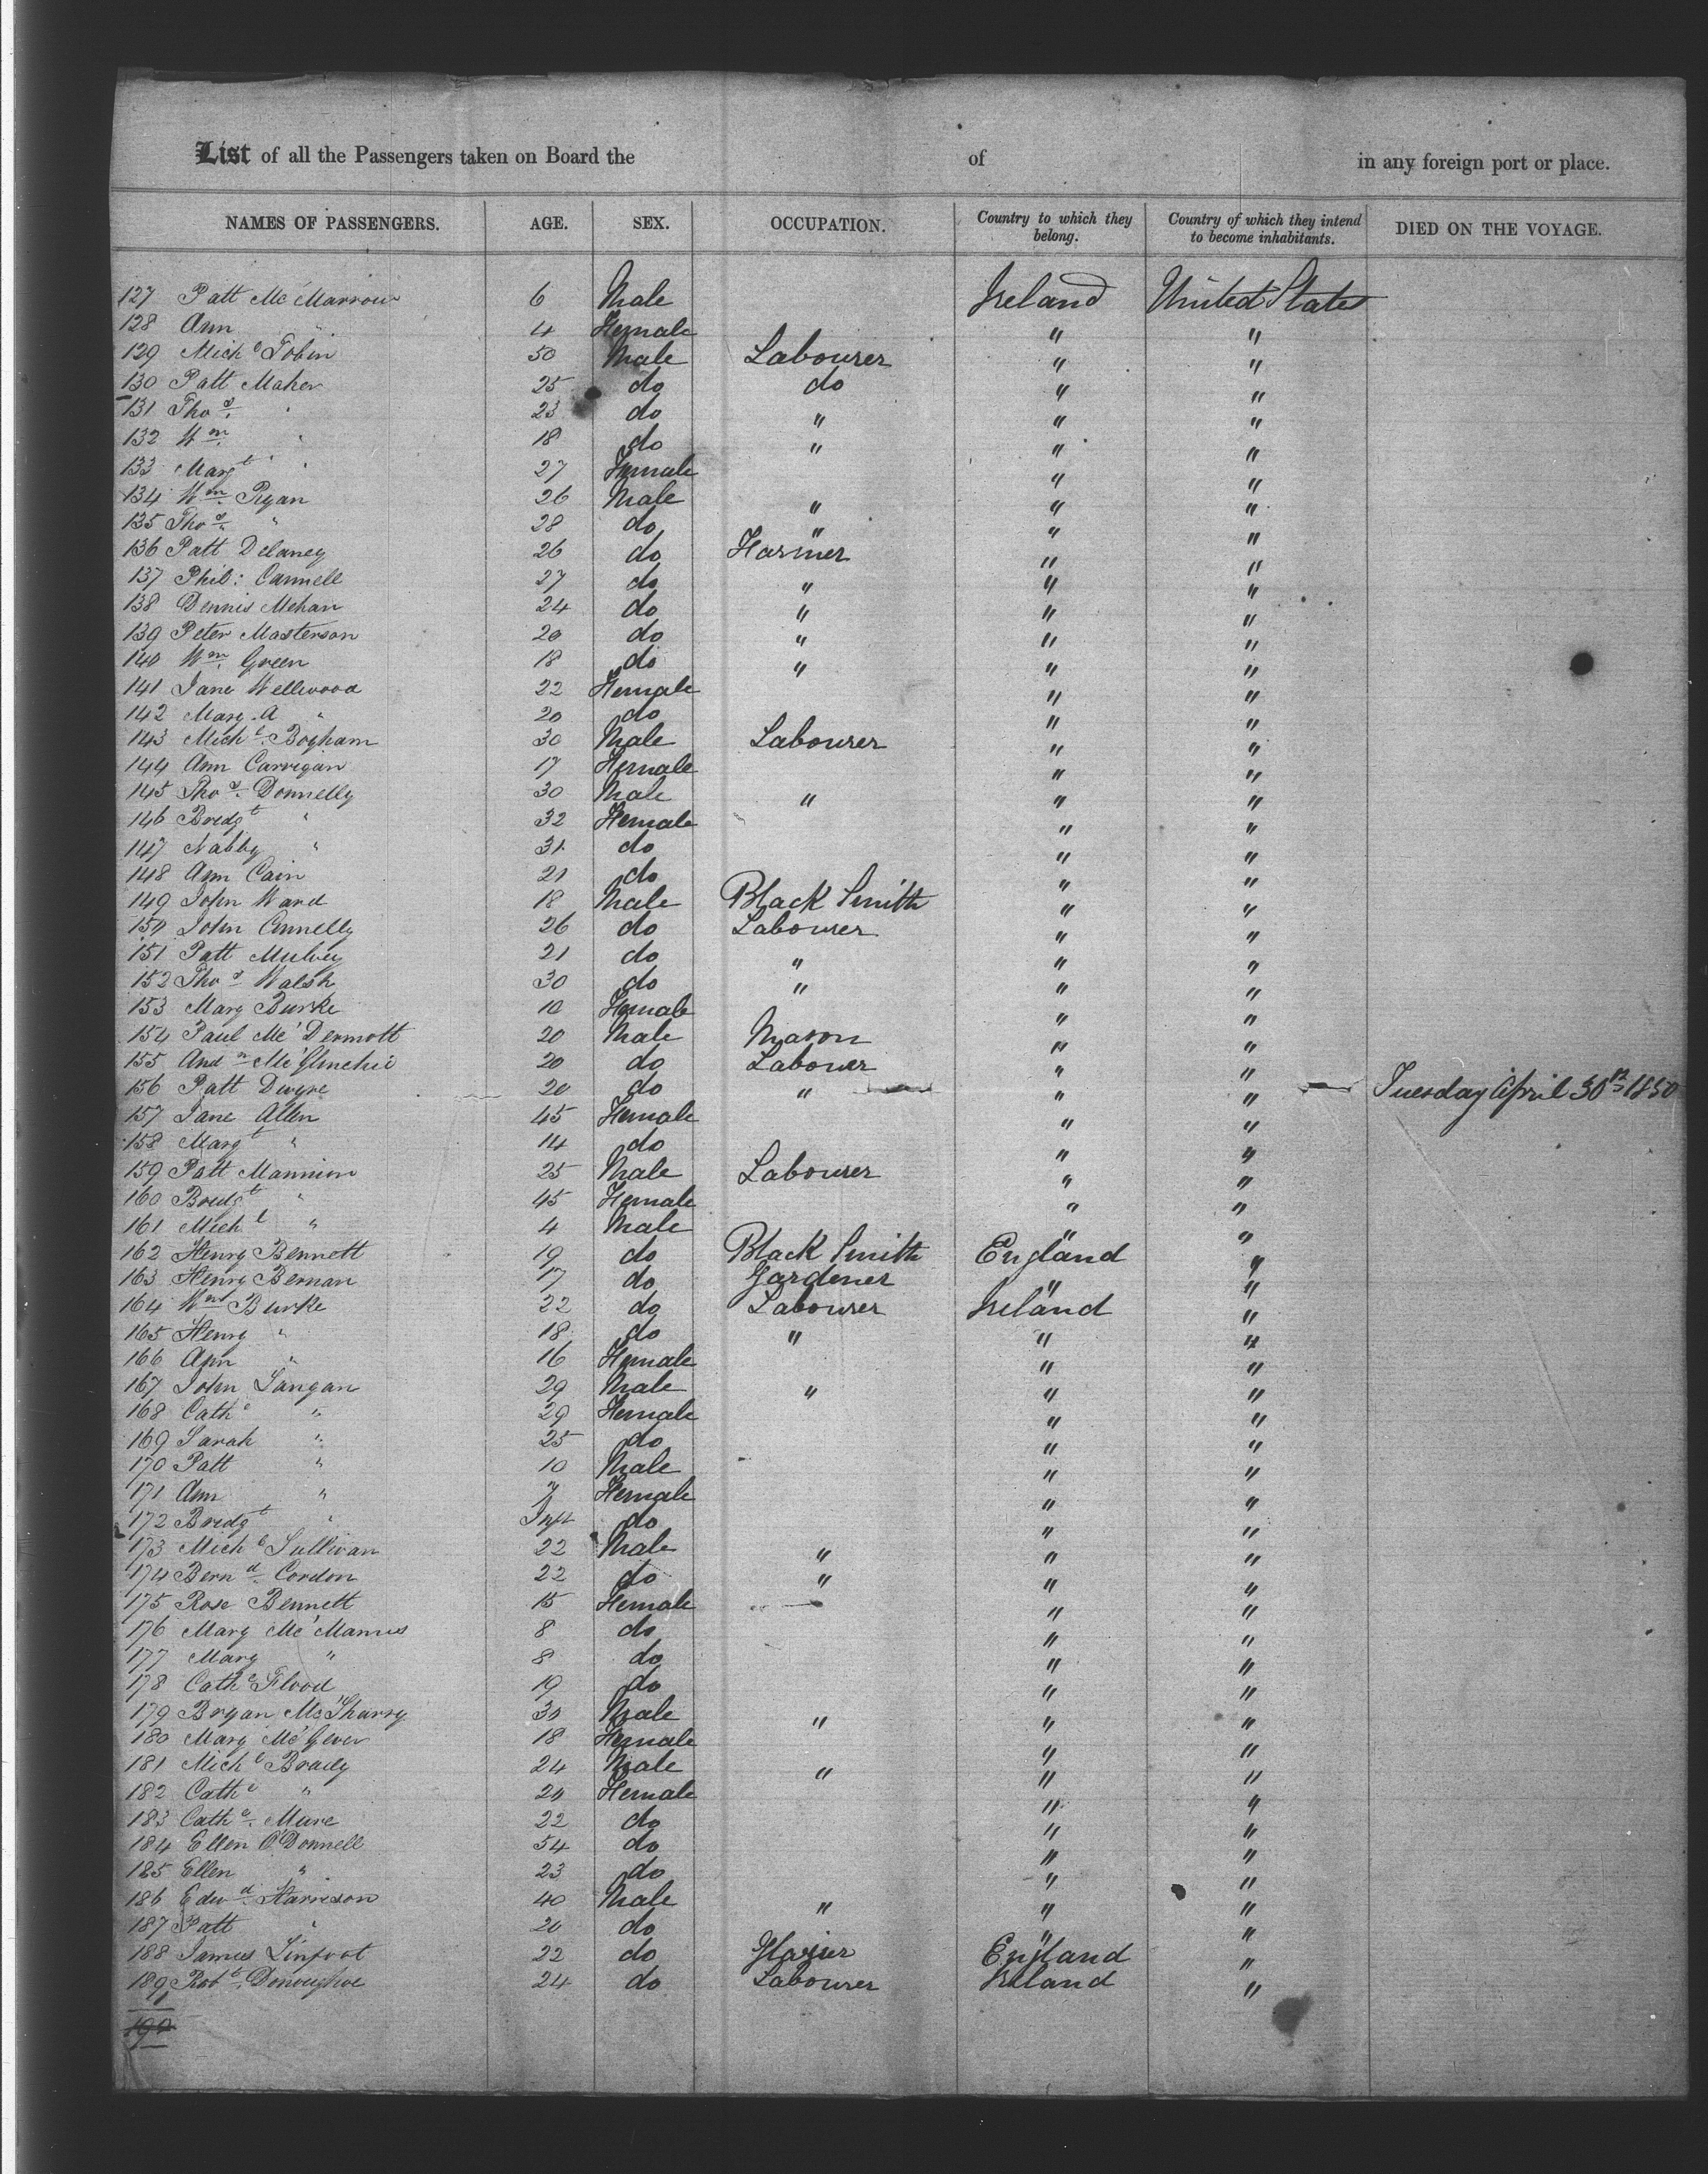 List of all the Passengers taken on Board the of in any foreign port or place.
NAMES OF PASSENGERS. AGE. SEX. OCCUPATION. Country to which they belong. Country of which they intend to become inhabitants. DIED ON THE VOYAGE.
127 Patt Mc Marrow 6 Male Ireland United States
128 Ann " 4 Female " "
129 Michl Tobin 50 Male Labourer " "
130 Patt Maher 25 do do " "
131 Thos. " 23 do " " "
132 Wm. " 18 do " " "
133 Margt " 27 Female " "
134 Wm. Ryan 26 Male " " "
135 Thos. " 28 do " " "
136 Patt Delaney 26 do Farmer " "
137 Phil: Cannell 27 do " " "
138 Dennis Mehan 24 do " " "
139 Peter Masterson 20 do " " "
140 Wm. Green 18 do " " "
141 Jane Wellwood 22 Female " "
142 Mary. A " 20 do " "
143 Michl. Bogham 30 Male Labourer " "
144 Ann Carrigan 17 Female " "
145 Thos. Donnelly 30 Male " " "
146 Bredgt " 32 Female " "
147 Nabby " 31 do " "
148 Ann Cain 21 do " "
149 John Ward 18 Male Black Smith " "
150 John Connelly 26 do Labourer " "
151 Patt Mulvey 21 do " " "
152 Thos Walsh 30 do " " "
153 Mary Burke 10 Female " "
154 Paul Mc'Dermott 20 Male Mason " "
155 Andw Mc'Glinchie 20 do Labourer " "
156 Patt Dwyre 20 do " " " Tuesday April 30th 1850
157 Jane Allen 45 Female " "
158 Margt " 14 do " "
159 Patt Mannion 25 Male Labourer " "
160 Bredgt " 45 Female " "
161 Michl " 4 Male " "
162 Henry Bennett 19 do Black Smith England "
163 Henry Bernan 17 do Gardener " "
164 Wm Burke 22 do Labourer Ireland "
165 Henry " 18 do " " "
166 Ann " 16 Female " "
167 John Langan 29 Male " " "
168 Cathe " 29 Female " "
169 Sarah " 25 do " "
170 Patt " 10 Male " "
171 Ann " 7 Female " "
172 Bredgt " Inft do " "
173 Michl Sullivan 22 Male " " "
174 Bernd. Cordon 22 do " " "
175 Rose Bennett 15 Female " "
176 Mary Mc'Manus 8 do " "
177 Mary " 8 do " "
178 Cathe Flood 19 do " "
179 Bryan McSharry 30 Male " " "
180 Mary Mc'Gever 18 Female " "
181 Michl Brady 24 Male " " "
182 Cathe " 20 Female " "
183 Cathe. Mure 22 do " "
184 Ellen O'Donnell 54 do " "
185 Ellen " 23 do " "
186 Edwd. Harrison 40 Male " " "
187 Patt " 20 do " "
188 James Linfoot 22 do Glazier England "
189 Robt. Donoughue 24 do Labourer Ireland "
190